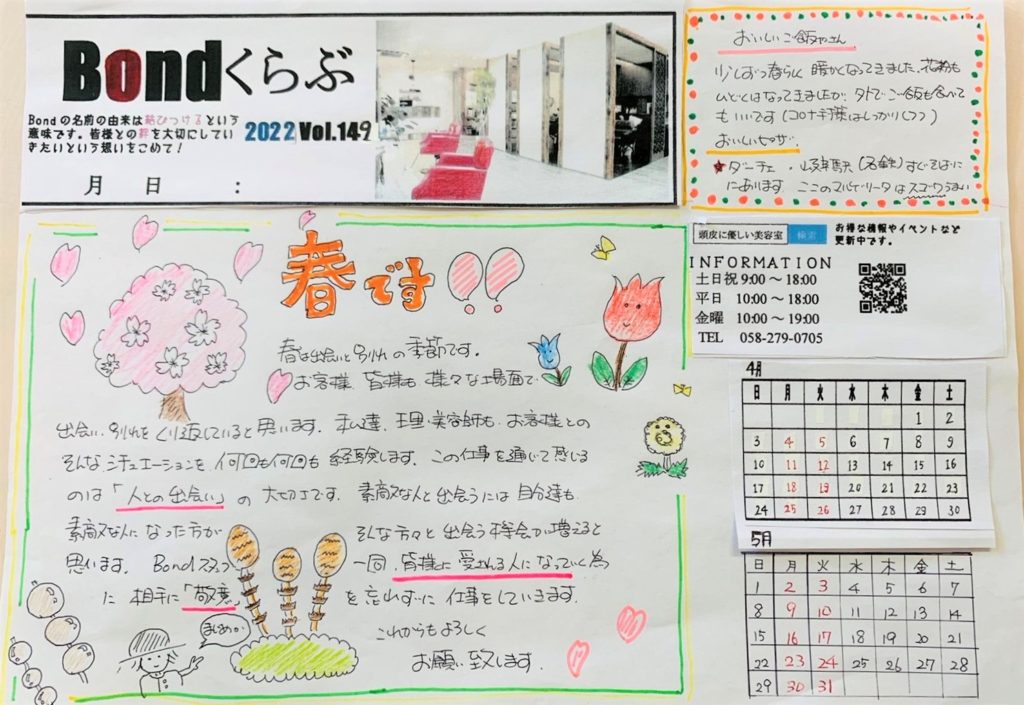 Bondくらぶ
Bondの名前の由来は結びつけるという
意味です。皆様との絆を大切にしてい
きたいという想いをこめて！
2022 Vol.149
月 日 ：
おいしいご飯やさん
少しずつ春らしく 暖かくなってきました。花粉も
ひどくはなってきましたが 外で ご飯も食べて
もいいです(コロナ対策はしっかりしつつ)
おいしいピザ
★ダーチェ・岐阜駅(名鉄)すぐそばに
にあります ここのマルゲリータはスゴーウうまい
頭皮に優しい美容室 検索
お得な情報やイベントなど
更新中です。
INFORMATION
土日祝 9:00 〜 18:00
平日 10:00 〜 18:00
金曜 10:00 〜 19:00
TEL 058-279-0705
春です!!
春は出会いと別れの季節です。
お客様、皆様も様々な場面で
出会い、別れをくり返していると思います。私達、理・美容師も、お客様との
そんなシチュエーションを何回も何回も経験します。この仕事を通じて感じる
のは「人との出会い」の大切さです。素敵な人と出会うには自分達も
素敵な人になった方が そんな方々と出会う機会が増えると
思います。Bondスタッフ 一同、皆様に愛される人になっていく為
に 相手に「敬意」 を忘れずに仕事をしていきます。
これからもよろしく
お願い致します。
まじめか
4月
日 月 火 水 木 金 土
1 2
3 4 5 6 7 8 9
10 11 12 13 14 15 16
17 18 19 20 21 22 23
24 25 26 27 28 29 30
5月
日 月 火 水 木 金 土
1 2 3 4 5 6 7
8 9 10 11 12 13 14
15 16 17 18 19 20 21
22 23 24 25 26 27 28
29 30 31